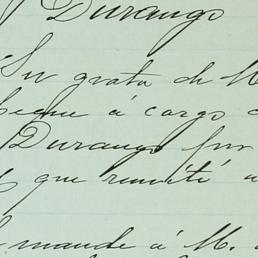 Durango
Su grata de M
peque á cargo d
Durango fur
que remití a
mande á M.